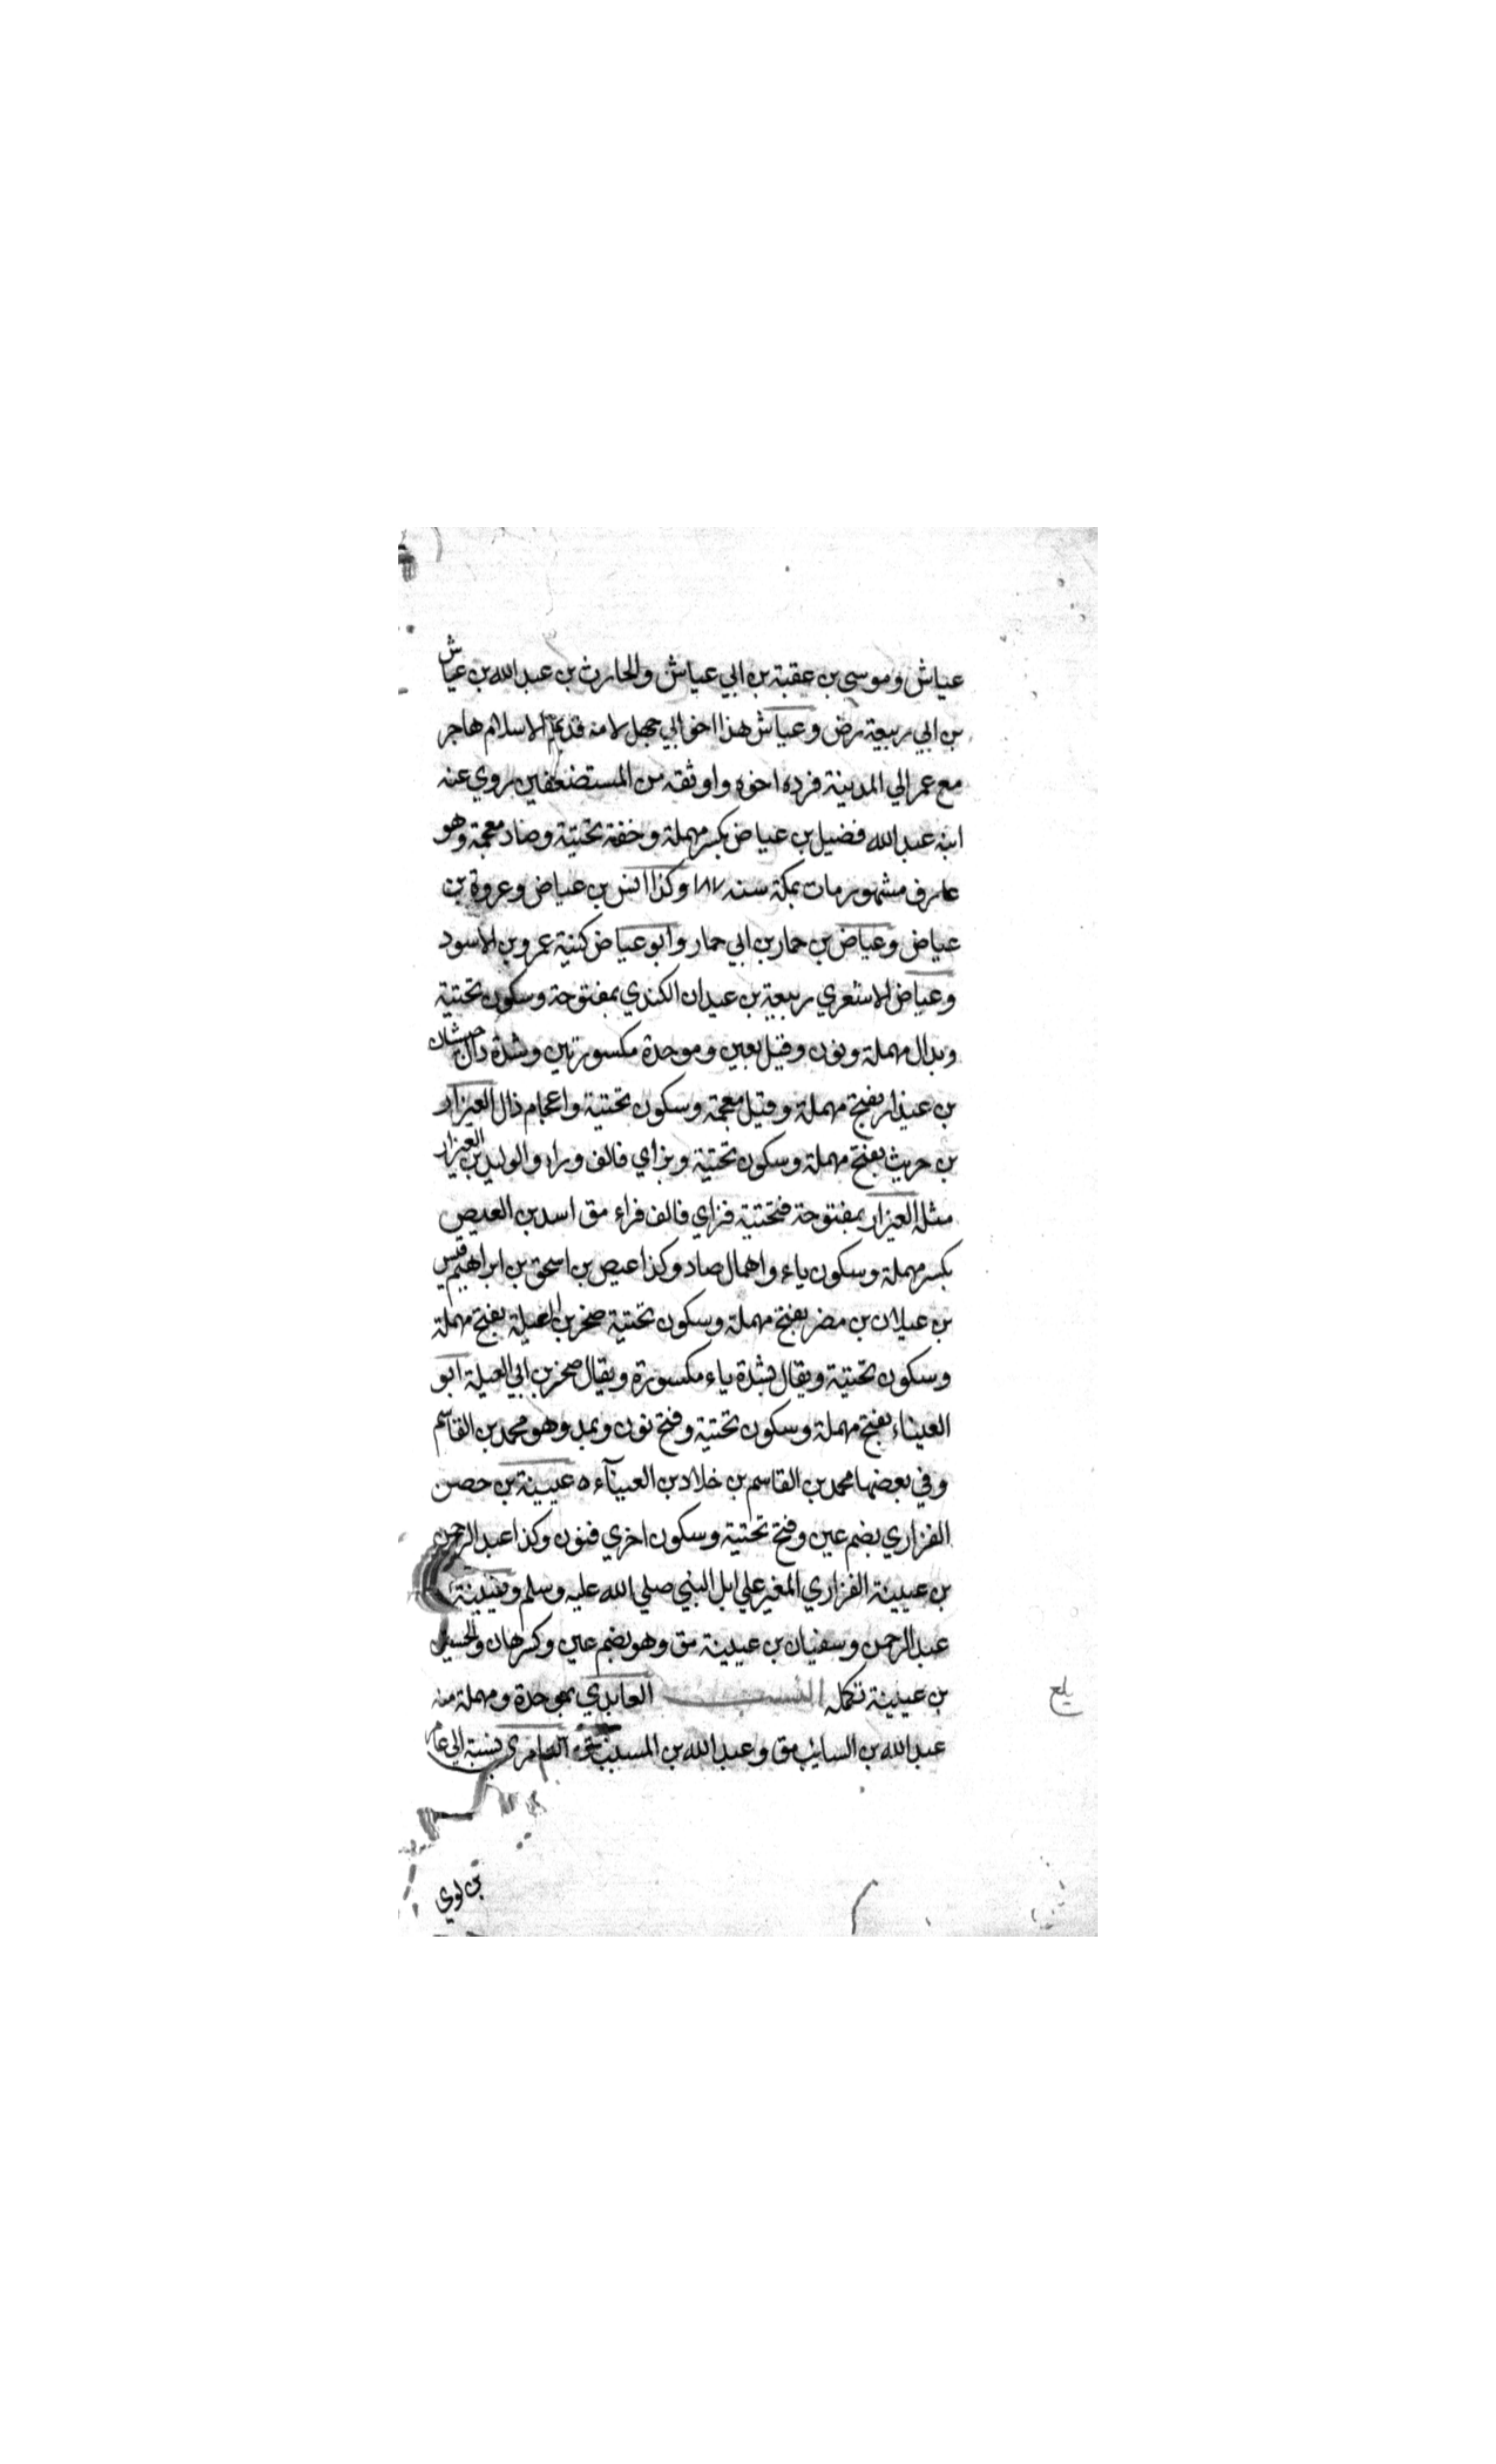 عياش وموسى بن عقبة بن ابي عياش والحارث بن عبد الله بن عياش
بن ابي ربيعة رض وعياش هذا اخو ابي جهل لامه قديم الاسلام هاجر
مع عمر الي المدينة فرده اخوه واوثقه من المستضعفين روي عنه
ابنه عبد الله فضيل بن عياض بكسر مهملة وخفة تحتية وضاد معجمة وهو
عارف مشهور مات بمكة سنه ١٨٧ وكذا انس بن عياض وعروة بن
عياض وعياض بن حمار بن ابي حمار وابو عياض كنية عمرو بن الاسود
وعياض الاشعري ربيعة بن عيدان الكندي بمفتوحة وسكون تحتية
وبدال مهملة ونون وقيل بعين وموحدة مكسورتين وشدة دال
بن عيذار بفتح مهملة وقيل معجمة وسكون تحتية واعجام ذال العيزار
بن حريث بفتح مهملة وسكون تحتية وبزاي فالف وراء والوليد بن العيزار
مثله العيزار بمفتوحة فتحتية فزاي فالف فراء مق اسد بن العيص
بكسر مهملة وسكون ياء واهمال صاد وكذا عيص بن اسحق بن ابراهيم قيس
بن عيلان بن مضر بفتح مهملة وسكون تحتية صخر بن العيلة بفتح مهملة
وسكون تحتية ويقال بشدة ياء مكسورة ويقال صخر بن ابي العيلة ابو
العيناء بفتح مهملة وسكون تحتية وفتح نون وبمد وهو محمد بن القاسم
وفي بعضها محمد بن القاسم بن خلاد بن العيناء ه عيينة بن حصن
الفزاري بضم عين وفتح تحتية وسكون اخري فنون وكذا عبد الرحمن
بن عيينة الفزاري المغير علي ابل النبي صلي الله عليه وسلم وعيينة
عبد الرحمن وسفيان بن عيينة مق وهو بضم عين وكسرها
بن عيينة تكمله النسب العابدي بموحدة ومهملة منه
عبد الله بن السايب مق وعبد الله بن المسيب العامري نسبة الي عامر
بن لوي